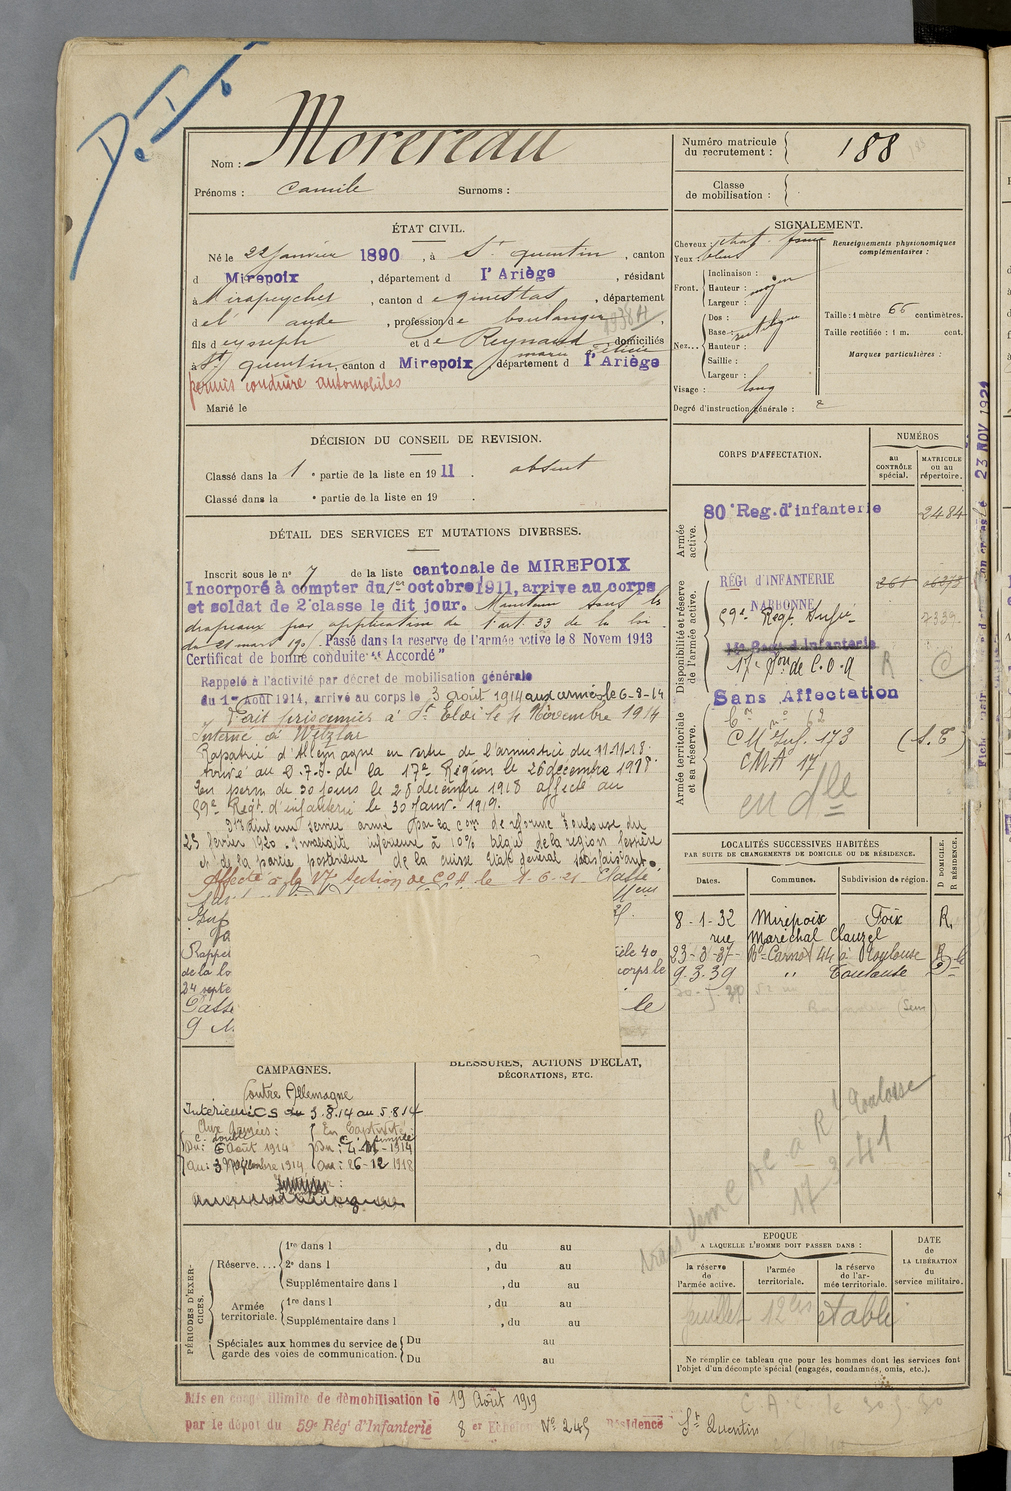 D. I.
Nom : Morereau
Prénoms : Camile Surnoms :
Numéro matricule du recrutement : 188
Classe de mobilisation :
ÉTAT CIVIL.
Né le 22 janvier 1890, à St quentin, canton
d Mirepoix, département d l'Ariège, résidant
à Mirapeychet, canton d e ginestas, département
d e l' aude, profession d e boulanger
fils d e Joseph et d e Reynaud marie domiciliés
à St. quentin, canton d Mirepoix, département d l'Ariège
permis conduire automobiles
Marié le
SIGNALEMENT.
Cheveux : chat. foncé
Yeux : bleus
Front. Inclinaison :
Hauteur : moyen
Largeur :
Nez... Dos :
Base : rectiligne
Hauteur :
Saillie :
Largeur :
Visage : long
Degré d'instruction générale : 2
Renseignements physionomiques complémentaires :
Taille : 1 mètre 66 centimètres.
Taille rectifiée : 1 m. cent.
Marques particulières :
DÉCISION DU CONSEIL DE REVISION.
Classé dans la 1e partie de la liste en 1911. absent
Classé dans la e partie de la liste en 19 .
DÉTAIL DES SERVICES ET MUTATIONS DIVERSES.
Inscrit sous le n° 7 de la liste cantonale de MIREPOIX
Incorporé à compter du 1er octobre 1911, arrive au corps
et soldat de 2e classe le dit jour. Maintenu sous les
drapeaux par application de l'art 33 de la loi
du 21 mars 190 . Passé dans la reserve de l'armée active le 8 Novem 1913
Certificat de bonne conduite "Accordé"
Rappelé à l'activité par décret de mobilisation générale
du 1er Août 1914, arrivé au corps le 3 août 1914 aux armées le 6-8-14
Fait prisonnier à St Eloi le 4 Novembre 1914
Interné à Wetzlar
Rapatrié d'Allemagne en vertu de l'armistice du 11.11.18.
Arrivé au D.T.I. de la 17e Région le 26 décembre 1918.
En perm de 30 jours le 28 décembre 1918 affecté au
59e Régt. d'infanterie le 30 Janv. 1919.
Maintenu service armé par la Com de réforme Toulouse du
25 février 1920. Invalidité inférieure à 10% de la région fessière
et de la partie postérieure de la cuisse Etat général satisfaisant.
Affecté à la 17 Section de COA le 1.6.21 Classé
Rappel
de la lo
24 septe
Passé
9 M
icle 40
corps le
le
CORPS D'AFFECTATION.
NUMÉROS
au CONTRÔLE spécial.
MATRICULE ou au répertoire.
Armée active.
80e Reg. d'infanterie 2484
Disponibilité et réserve de l'armée active.
RÉGt d'INFANTERIE
NARBONNE
59e Régt. Infie 7339
17e Son de C.O.A R C
Sans Affectation
Armée territoriale et sa réserve.
Con n° 62
CM Inf. 173 (S.E)
CMA 17
en dle
23 NOV 1921
LOCALITÉS SUCCESSIVES HABITÉES
PAR SUITE DE CHANGEMENTS DE DOMICILE OU DE RÉSIDENCE.
Dates. Communes. Subdivision de région. D DOMICILE. R RÉSIDENCE.
8-1-32 Mirepoix Foix R.
rue Maréchal Clauzel
23-3-37 Bd Carnot 44 à Toulouse R
9.3.39 " Toulouse D
CAMPAGNES.
Contre Allemagne
Intérieur CS du 3.8.14 au 5.8.14
Aux Armées : En Captivité :
C. double C. simple
Du : 6 Août 1914 Du : 4-11-1914
au : 3 Novembre 1914 au : 26-12-1918
BLESSURES, ACTIONS D'ECLAT,
DÉCORATIONS, ETC.
Toulouse
17-3-41
PÉRIODES D'EXERCICES.
Réserve.... 1re dans l , du au
2e dans l , du au
Supplémentaire dans l , du au
Armée territoriale. 1re dans l , du au
Supplémentaire dans l , du au
Spéciales aux hommes du service de garde des voies de communication. Du au
Du au
EPOQUE
A LAQUELLE L'HOMME DOIT PASSER DANS :
la réserve de l'armée active. l'armée territoriale. la réserve de l'armée territoriale.
DATE de LA LIBÉRATION du service militaire.
feuillet 12 établi
Ne remplir ce tableau que pour les hommes dont les services font l'objet d'un décompte spécial (engagés, condamnés, omis, etc.).
Mis en congé illimité de démobilisation le 19 Août 1919
par le dépôt du 59e Régt d'Infanterie 8er Echelon N° 245 Résidence St Quentin